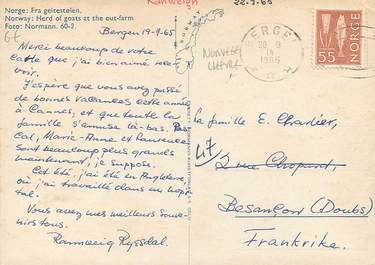 Norge: Fra geitestølen.
Norway: Herd of goats at the out-farm.
Foto: Normann. 60-2.
Ranweigh
22-9-65
67
Bergen 19-9-65
Merci beaucoup de votre
carte que j'ai bien aimé rece-
voir.
J'espère que vous avez passé
de bonnes vacances cette année
à Cannes, et que toute la
famille s'amuse là-bas. Pas-
cal, Marie-Anne et Laurence
sont beaucoup plus grands
maintenant, je suppose.
Cet été j'ai été en Angleterre,
où j'ai travaillé dans un hôpi-
tal.
Vous avez mes meilleurs souve-
nirs tous.
Rannveig Ryssdal.
NORVEGE
CHEVRE
BERGEN
20 9
14
1965
55
NORGE
La famille E. Charlier,
47
2 rue Chopart,
Besançon (Doubs)
Frankrike.